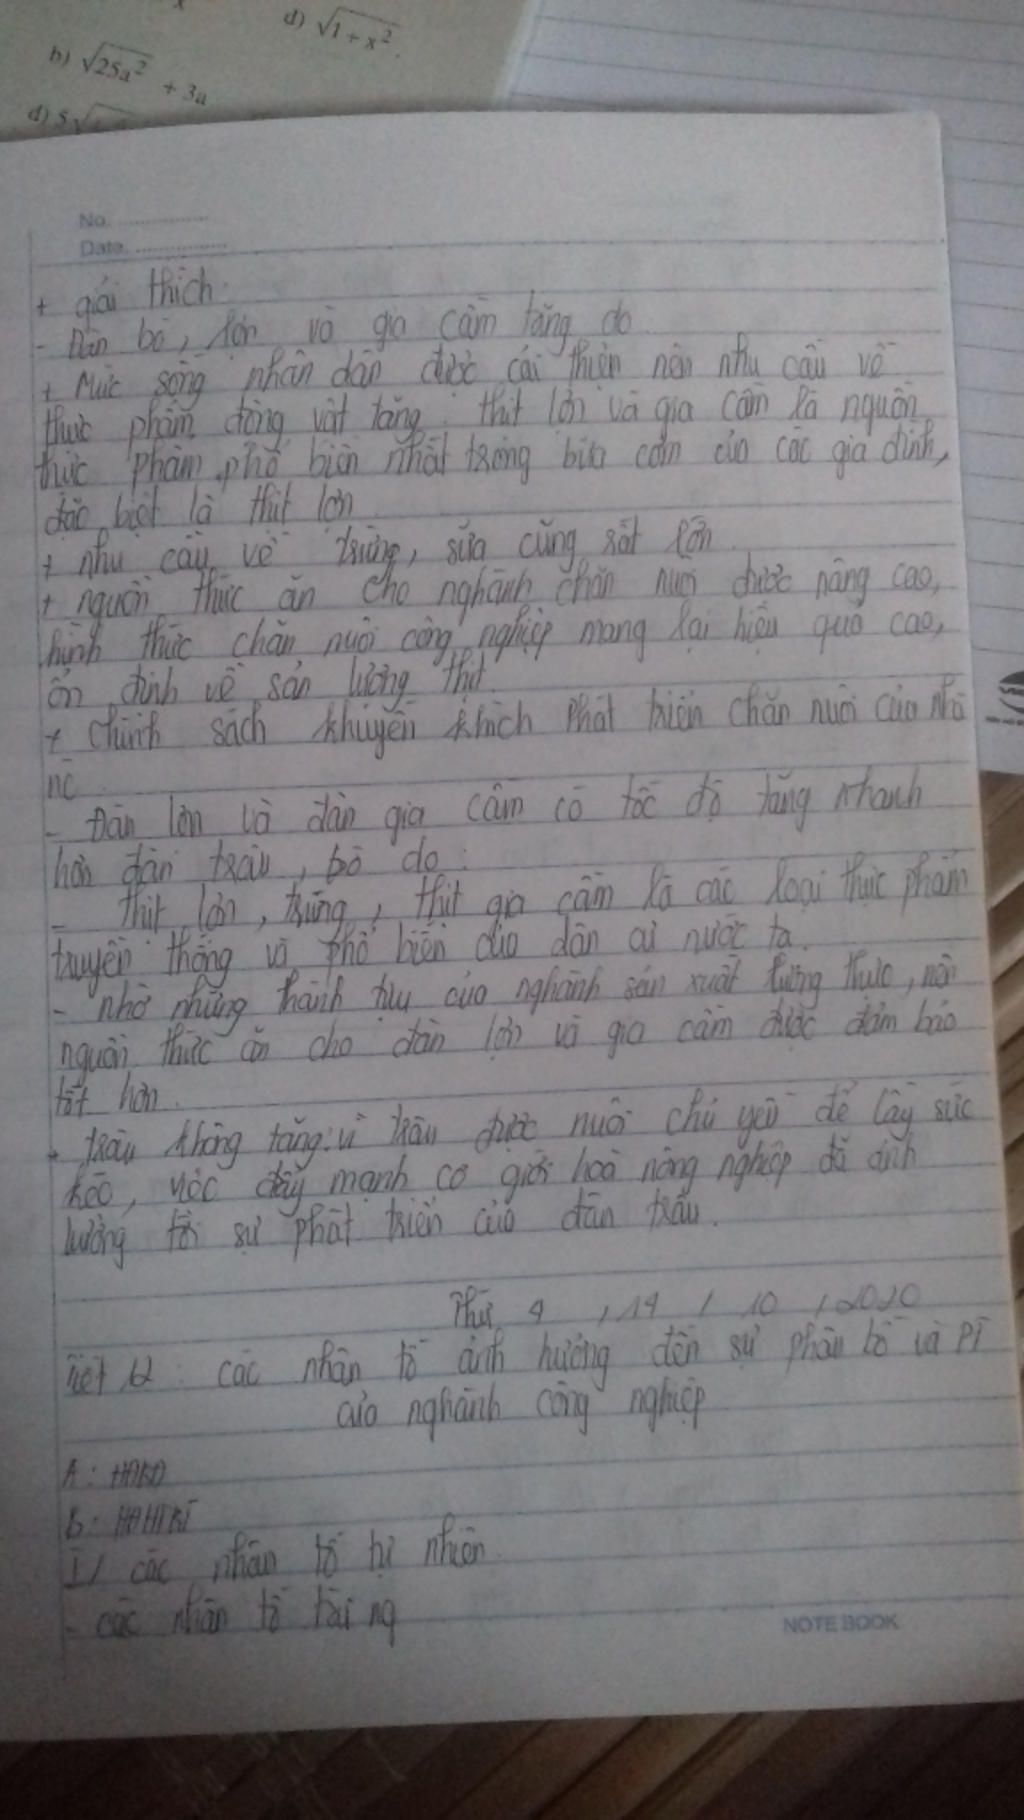 d) √1 + x².
b) √25a² + 3a
d) 5√
No.
Date.
+ giải thích:
- Đàn bò, lợn và gia cầm tăng do
+ Mức sống nhân dân được cải thiện nên nhu cầu về
thực phẩm động vật tăng. thịt lợn và gia cầm là nguồn
thực phẩm phổ biến nhất trong bữa cơm của các gia đình,
đặc biệt là thịt lợn
+ nhu cầu về trứng, sữa cũng rất lớn
+ nguồn thức ăn cho nghành chăn nuôi được nâng cao,
hình thức chăn nuôi công nghiệp mang lại hiệu quả cao,
ổn định về sản lượng thịt.
+ chính sách khuyến khích phát triển chăn nuôi của nhà
nc.
- Đàn lợn và đàn gia cầm có tốc độ tăng nhanh
hơn đàn trâu, bò do:
- thịt lợn, trứng, thịt gia cầm là các loại thực phẩm
truyền thống và phổ biến của dân cư nước ta.
- nhờ những thành tựu của nghành sản xuất lương thực, nên
nguồn thức ăn cho đàn lợn và gia cầm được đảm bảo
tốt hơn.
+ trâu không tăng: vì trâu được nuôi chủ yếu để lấy sức
kéo, việc đẩy mạnh cơ giới hoá nông nghiệp đã ảnh
hưởng tới sự phát triển của đàn trâu.
Thứ 4 , 14 / 10 / 2020
Tiết 12 : các nhân tố ảnh hưởng đến sự phân bố và PT
của nghành công nghiệp
A : HĐKĐ
B : HĐHTKT
I/ các nhân tố tự nhiên
- các nhân tố tài ng
NOTE BOOK